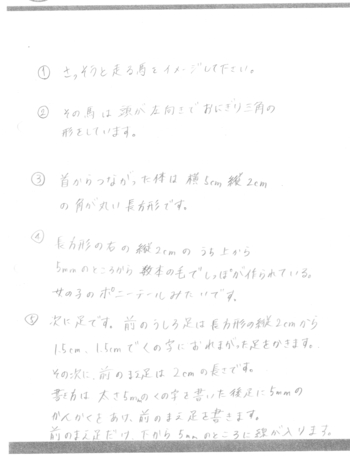 ① さっそうと走る馬をイメージして下さい。
② その馬は頭が左向きでおにぎり三角の
形をしています。
③ 首からつながった体は横5cm縦2cm
の角が丸い長方形です。
④ 長方形の右の縦2cmのうち上から
5mmのところから数本の毛でしっぽが作られている。
女の子のポニーテールみたいです。
⑤ 次に足です。前のうしろ足は長方形の縦2cmから
1.5cm、1.5cmでくの字におれまがった足をかきます。
その次に、前のまえ足は2cmの長さです。
書き方は太さ5mmのくの字を書いた後足に5mmの
かんかくをあけ、前のまえ足を書きます。
前のまえ足だけ、下から5mmのところに線が入ります。